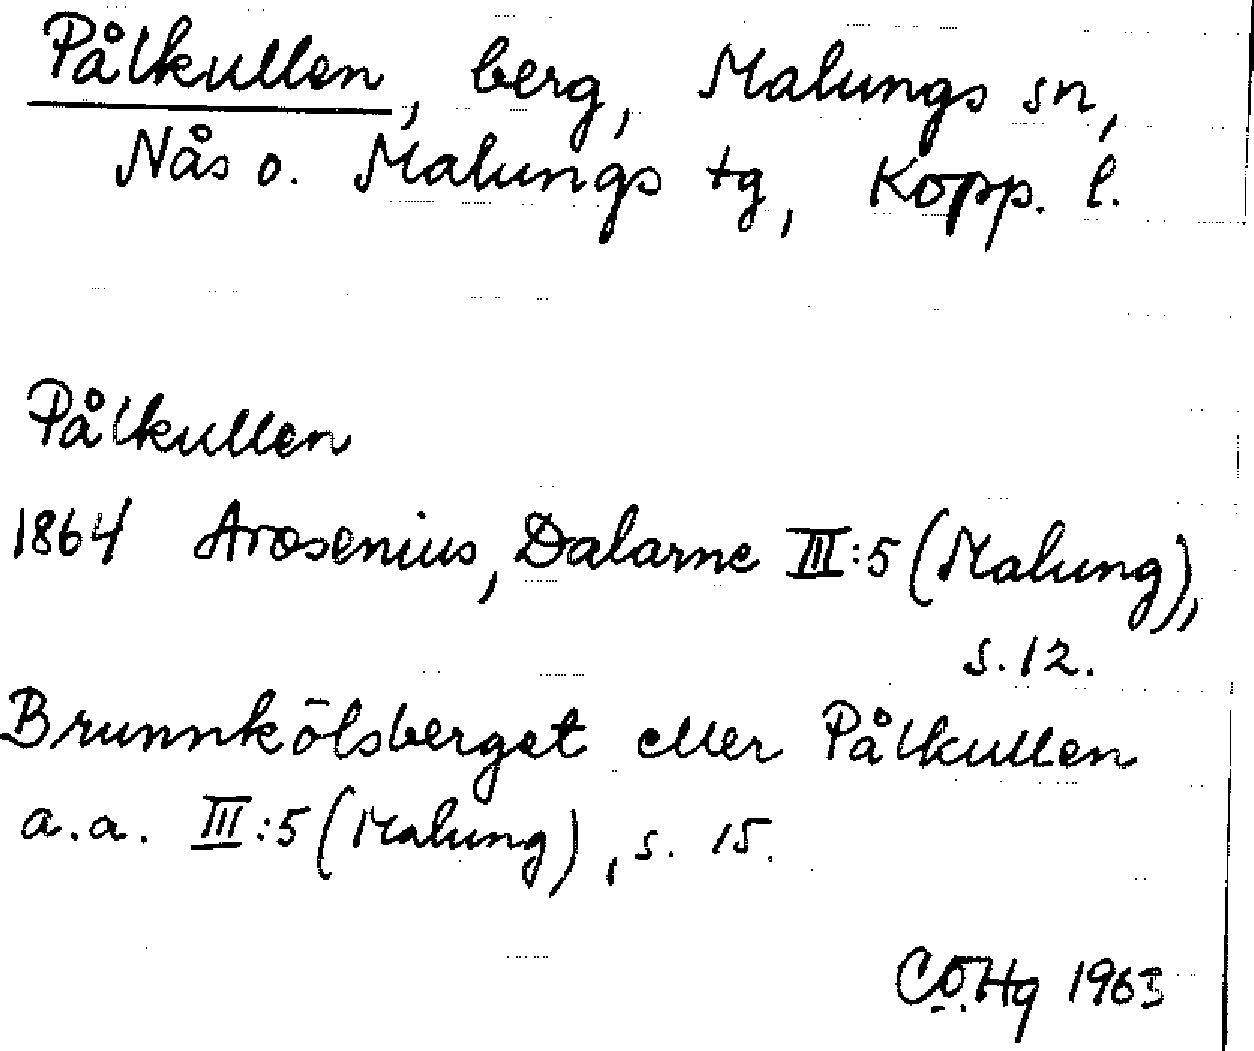 Pålkullen, berg, Malungs sn,
Nås o. Malungs tg, Kopp. l.
Pålkullen
1864 Arosenius, Dalarne III:5 (Malung),
s. 12.
Brunnkölsberget eller Pålkullen
a.a. III:5 (Malung), s. 15.
CÖHg 1963